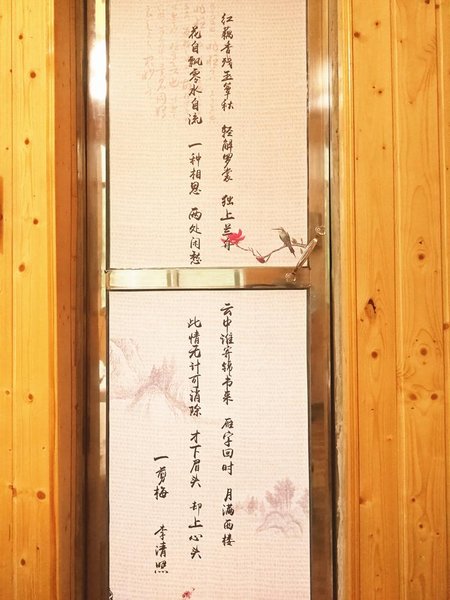 红藕香残玉簟秋 轻解罗裳 独上兰舟
花自飘零水自流 一种相思 两处闲愁
云中谁寄锦书来 雁字回时 月满西楼
此情无计可消除 才下眉头 却上心头
一剪梅 李清照